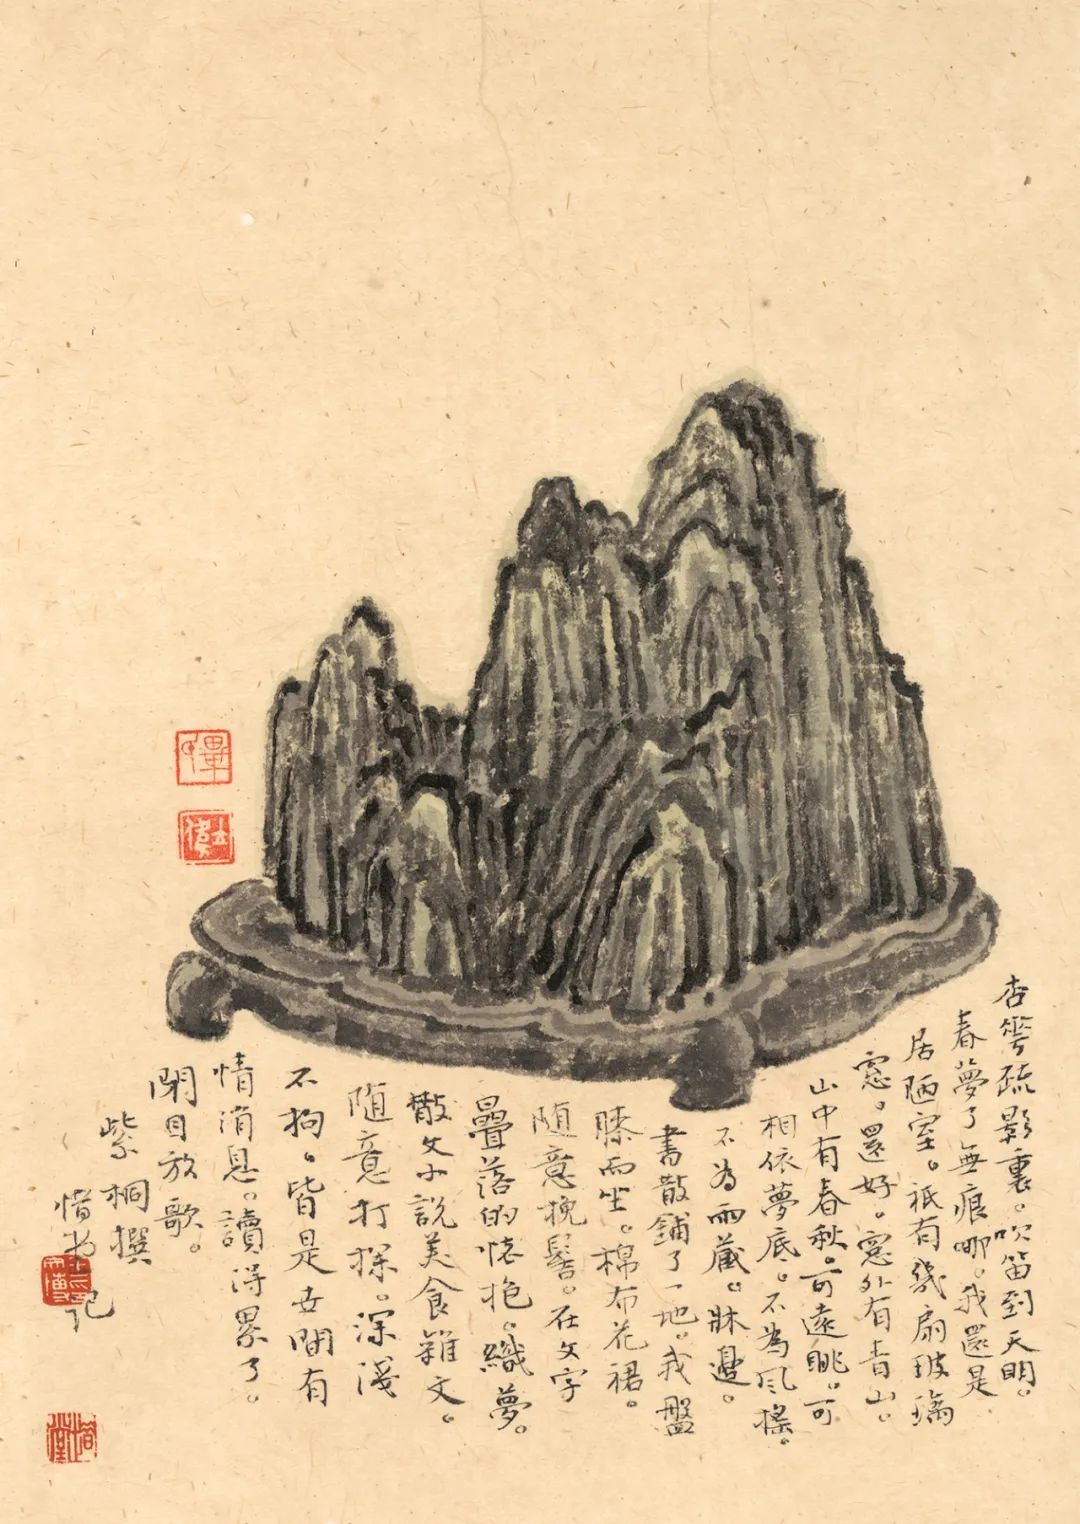 杏花疏影裏。吹笛到天明。
春夢了無痕哪。我還是
居陋室。祇有幾扇玻璃
窻。還好。窻外有青山。
山中有春秋。可遠眺。可
相依夢底。不為風搖。
不為雨藏。牀邊。
書散鋪了一地。我盤
膝而坐。棉布花裙。
隨意挽髻。在文字
疊落的懷抱。織夢。
散文小說美食雜文。
隨意打探。深淺
不拘。皆是世間有
情消息。讀得累了。
閉目放歌。
紫桐撰